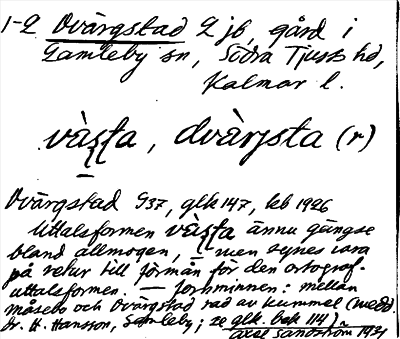 1-2 Dvärgstad 2 jb, gård i
Gamleby sn, Södra Tjust hd,
Kalmar l.
vàṣṭa, dvàrjsta (r)
Dvärgstad G37, glk 147, kb 1926
Uttalsformen vàṣṭa ännu gängse
bland allmogen, — men synes vara
på retur till förmån för den ortograf.
uttalsformen. — Fornminnen: mellan
Måsebo och Dvärgstad rad av kummel (medd.
hr. H. Hansson, Gamleby; se glk. bok 114)
Axel Sandström 1931